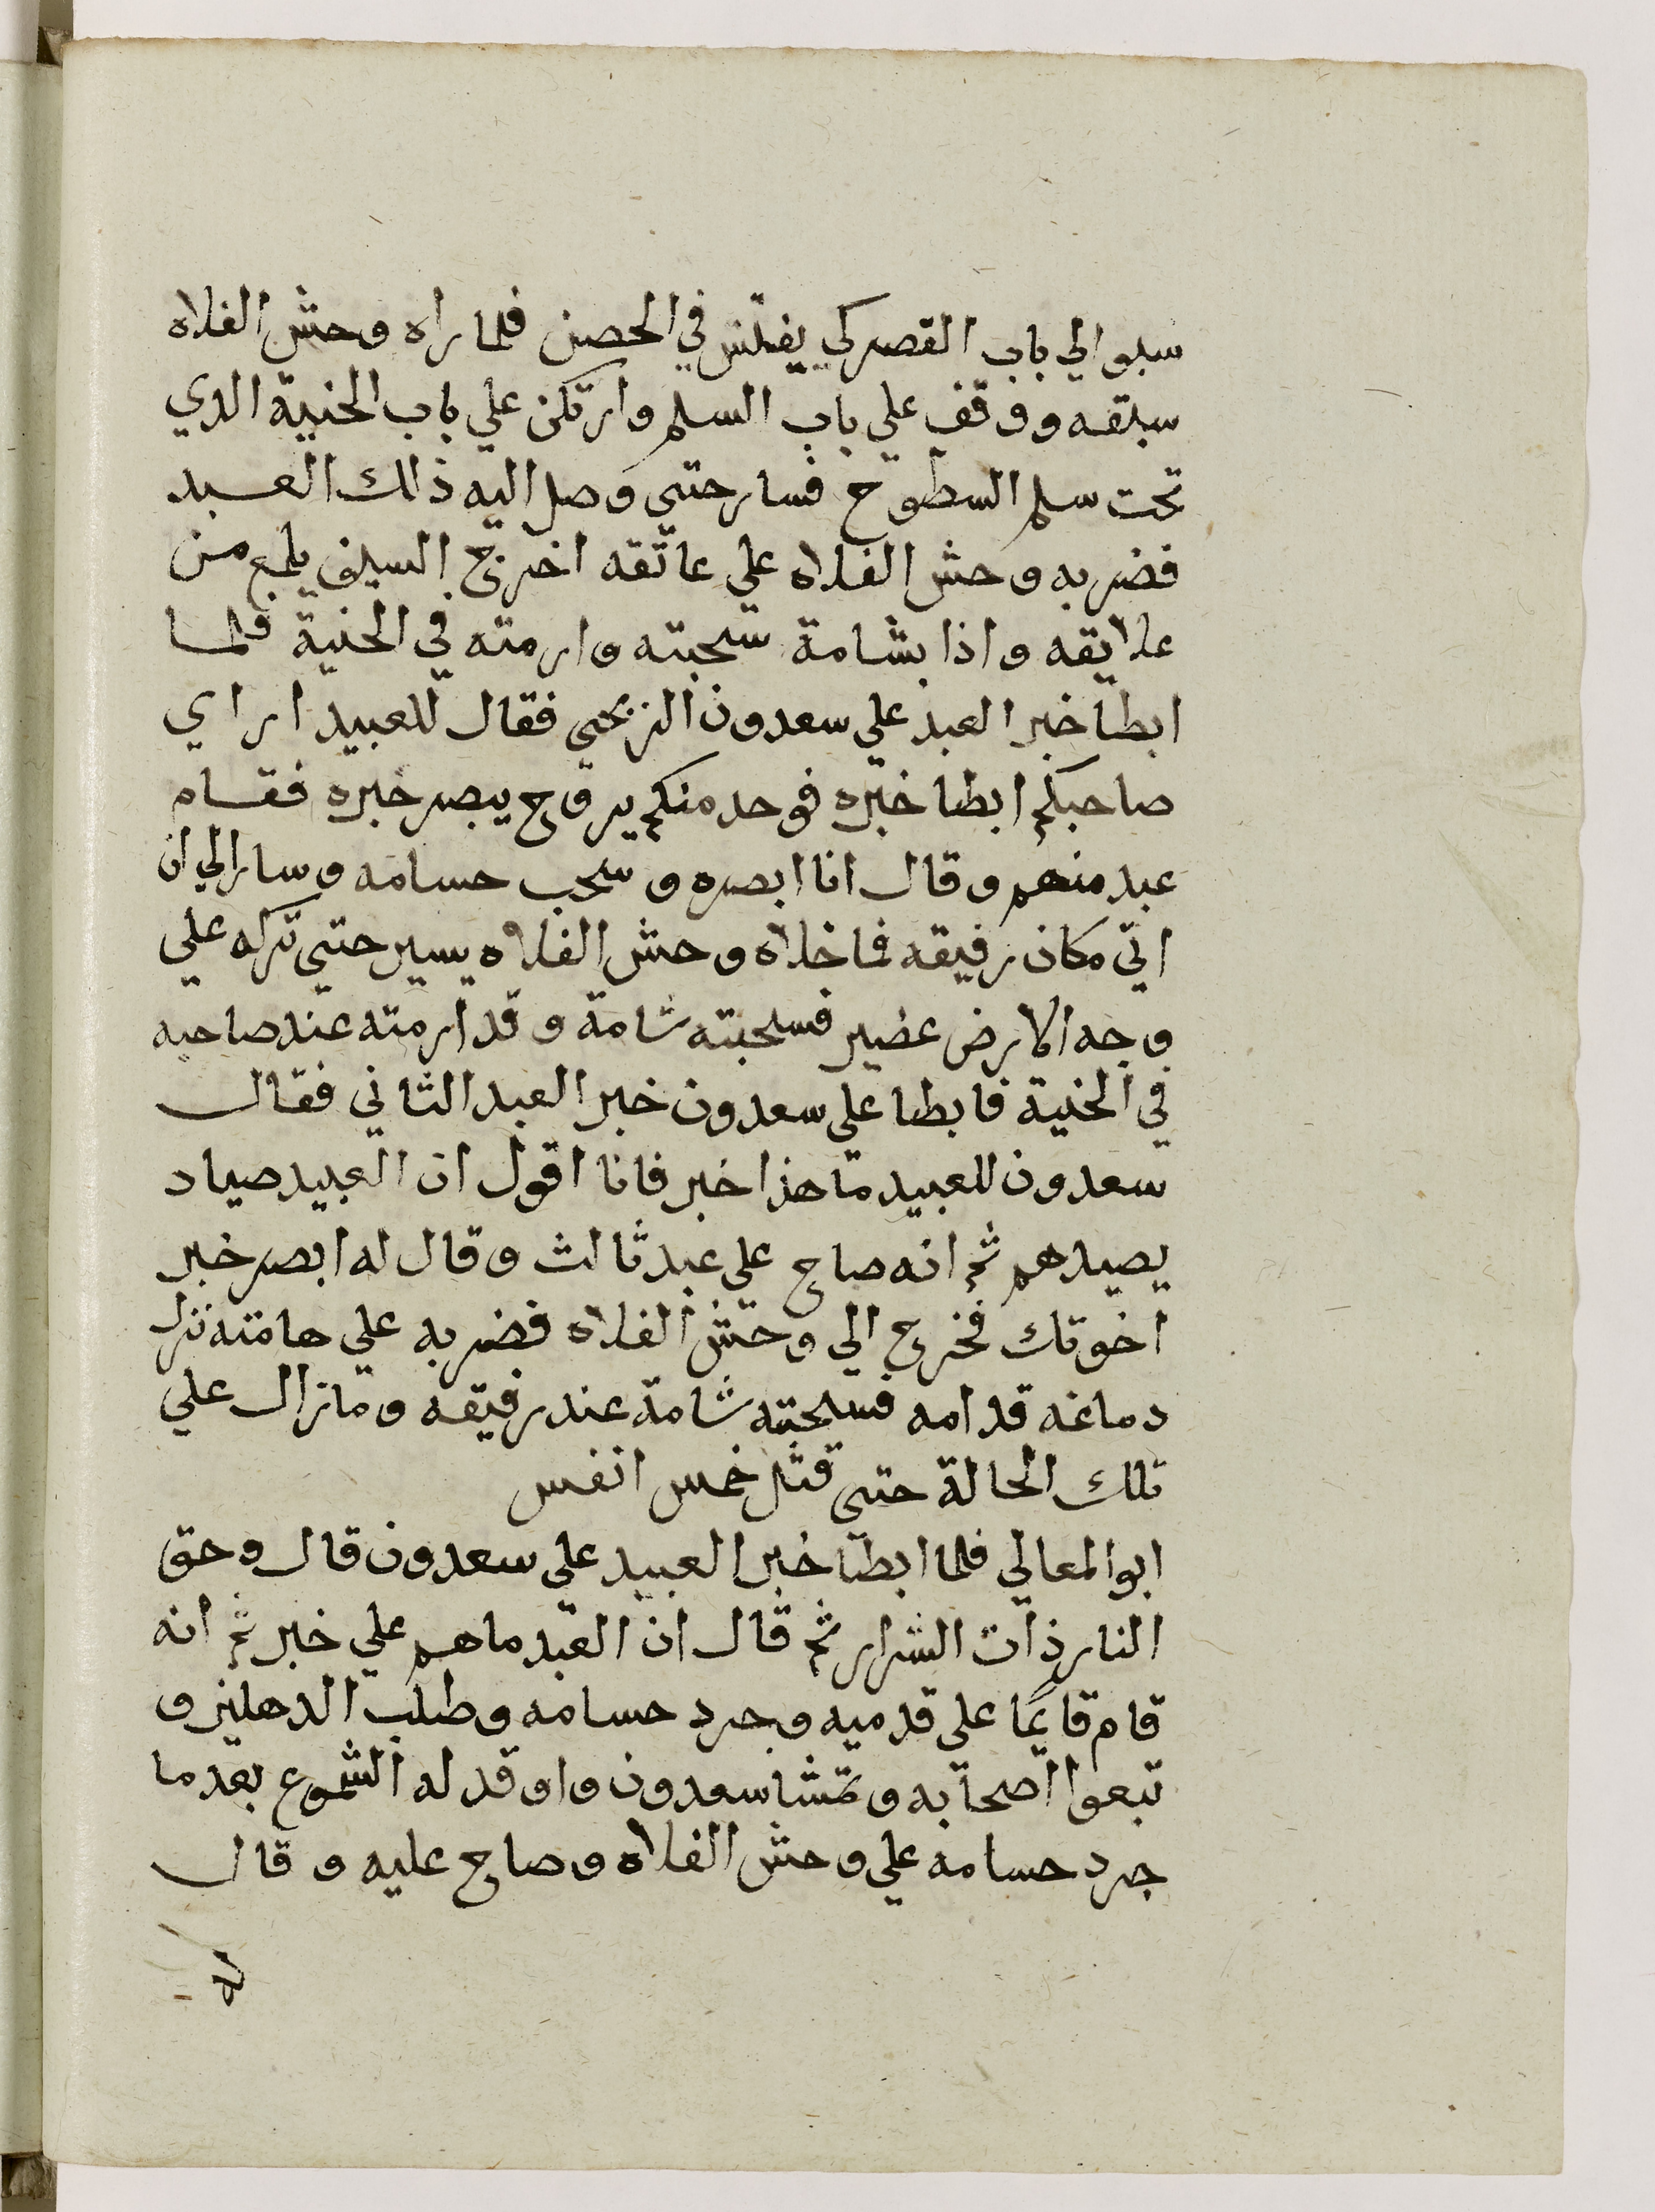 سلبوا الي باب القصر كي يفتش في الحصن فلما راه وحش الفلاه
سبقه ووقف علي باب السلم وارتكن علي باب الحنية الدي
تحت سلم السطوح فسار حتى وصل اليه ذلك العبد
فضربه وحش الفلاه علي عاتقه اخرج السيف يلمع من
علايقه واذا بشامة سحبته وارمته في الحنية فلما
ابطا خبر العبد علي سعدون الزنجي فقال للعبيد اراي
صاحبكم ابطا خبره فوحد منكم يروح يبصر خبره فقام
عبد منهم وقال انا ابصره وسحب حسامه وسار الي ان
اتي مكان رفيقه فما خلاه وحش الفلاه يسير حتى تركه علي
وجه الارض عفير فسحبته شامة وقد ارمته عند صاحبه
في الحنية فابطا علي سعدون خبر العبد الثاني فقال
سعدون للعبيد ما هذا خبر فانا اقول ان العبيد صياد
يصيدهم ثم انه صاح علي عبد ثالث وقال له ابصر خبر
اخوتك فخرج الي وحش الفلاه فضربه علي هامته نزل
دماغه قدامه فسحبته شامة عند رفيقه ومازال علي
تلك الحالة حتى قتل خمس انفس
ابو المعالي فلما ابطا خبر العبيد علي سعدون قال وحق
النار ذات الشرار ثم قال ان العبد ماهم علي خبر ثم انه
قام قايمًا علي قدميه وجرد حسامه وطلب الدهليز و
تبعوا اصحابه وتمشا سعدون واوقد له الشموع بعد ما
جرد حسامه علي وحش الفلاه وصاح عليه وقال